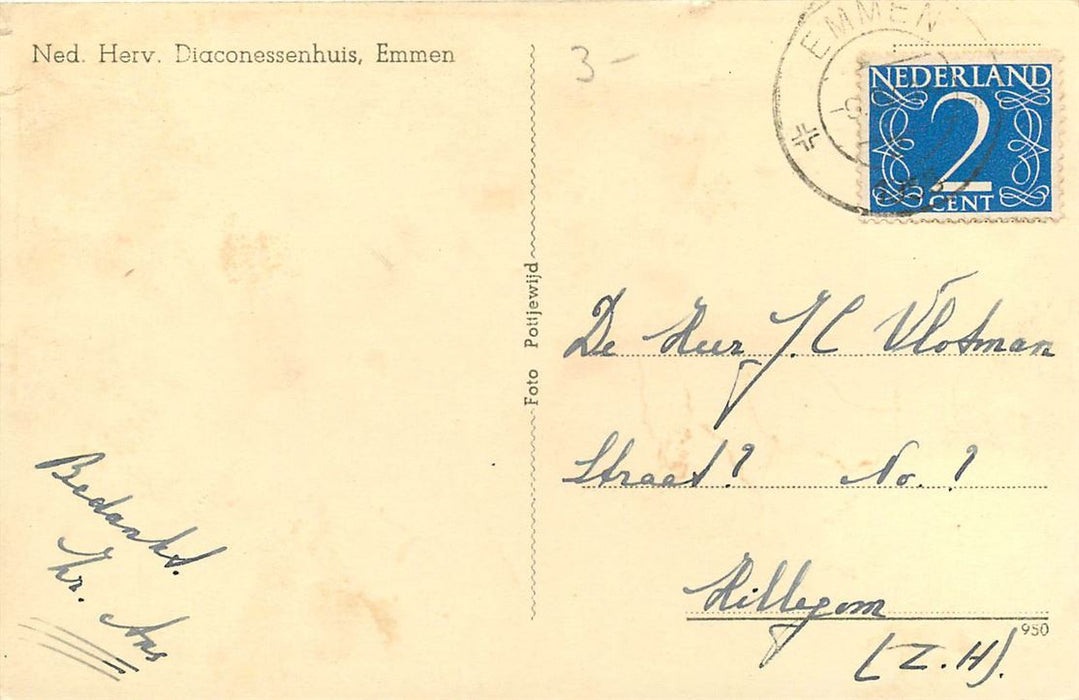 Ned. Herv. Diaconessenhuis, Emmen
3-
EMMEN
NEDERLAND
2
CENT
Foto Pottjewijd
De Heer J.C Vlotman
Straat? No. ?
Hillegom
950
(Z.H).
Bedankt.
Gr. Ans